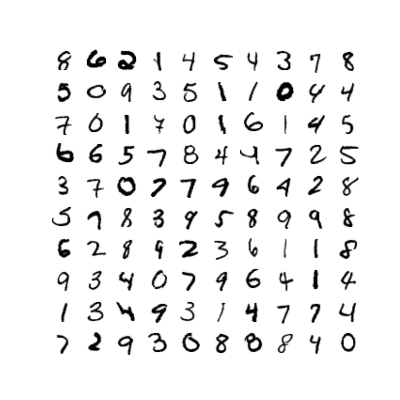 8 6 2 1 4 5 4 3 7 8
5 0 9 3 5 1 1 0 4 4
7 0 1 7 0 1 6 1 4 5
6 6 5 7 8 4 4 7 2 5
3 7 0 7 7 9 6 4 2 8
5 7 8 3 9 5 8 9 9 8
6 2 8 9 2 3 6 1 1 8
9 3 4 0 7 9 6 4 1 4
1 3 4 9 3 1 4 7 7 4
7 2 9 3 0 8 8 8 4 0